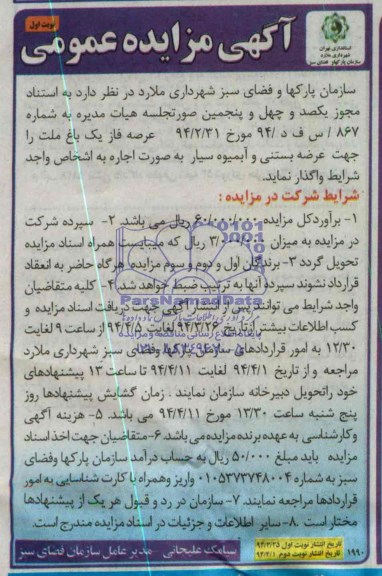 نوبت اول
آگهی مزایده عمومی
استانداری تهران
شهرداری ملارد
سازمان پارکها و فضای سبز
سازمان پارکها و فضای سبز شهرداری ملارد در نظر دارد به استناد
مجوز یکصد و چهل و پنجمین صورتجلسه هیات مدیره به شماره
۸۶۷ / س ف د /۹۴ مورخ ۹۴/۲/۳۱ عرصه فاز یک باغ ملت را
جهت عرضه بستنی و آبمیوه سیار به صورت اجاره به اشخاص واجد
شرایط واگذار نماید.
شرایط شرکت در مزایده :
۱- برآوردکل مزایده ۶۰/۰۰۰/۰۰۰ ریال می باشد. ۲- سپرده شرکت
در مزایده به میزان ۳/۰۰۰/۰۰۰ ریال که میبایست همراه اسناد مزایده
تحویل گردد ۳- برندگان اول و دوم و سوم مزایده هرگاه حاضر به انعقاد
قرارداد نشوند سپرده آنها به ترتیب ضبط خواهد شد. ۴- کلیه متقاضیان
واجد شرایط می توانند پس از انتشار آگهی جهت دریافت اسناد مزایده و
کسب اطلاعات بیشتر از تاریخ ۹۴/۳/۲۶ لغایت ۹۴/۴/۵ از ساعت ۹ لغایت
۱۲/۳۰ به امور قراردادهای سازمان پارکها و فضای سبز شهرداری ملارد
مراجعه و از تاریخ ۹۴/۴/۱ لغایت ۹۴/۴/۱۱ تا ساعت ۱۳ پیشنهادهای
خود راتحویل دبیرخانه سازمان نمایند . زمان گشایش پیشنهادها روز
پنج شنبه ساعت ۱۳/۳۰ مورخ ۹۴/۴/۱۱ می باشد. ۵- هزینه آگهی
وکارشناسی به عهده برنده مزایده می باشد. ۶-متقاضیان جهت اخذ اسناد
مزایده باید مبلغ ۵۰/۰۰۰ ریال به حساب درآمد سازمان پارکها وفضای
سبز به شماره ۰۱۰۵۳۷۳۷۴۸۰۰۴ واریز وهمراه با کارت شناسایی به امور
قراردادها مراجعه نمایند. ۷- سازمان در رد و قبول هر یک از پیشنهادها
مختار است .۸- سایر اطلاعات و جزئیات در اسناد مزایده مندرج است.
تاریخ انتشار نوبت اول ۹۴/۳/۲۵
تاریخ انتشار نوبت دوم ۹۴/۴/۱
۱۹۹۰
سیامک علیجانی - مدیر عامل سازمان فضای سبز
ParsNamadData